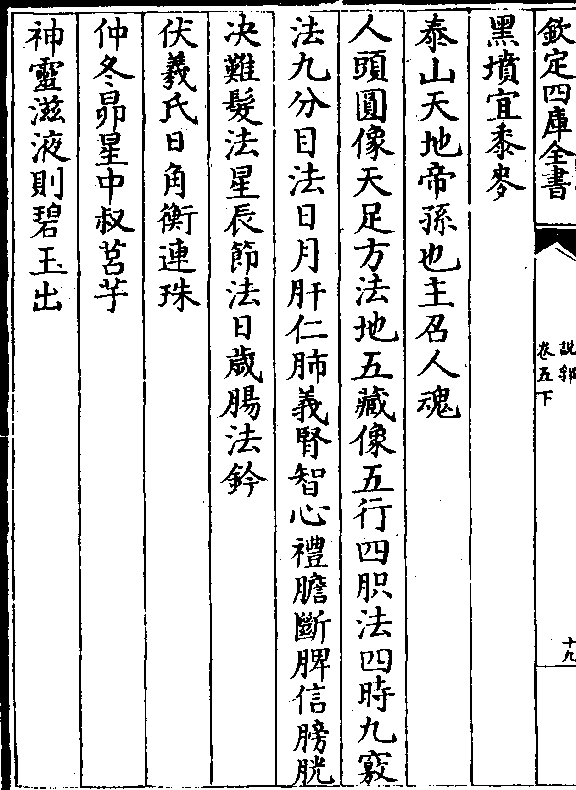 欽定四庫全書
說郛
卷五下
十九
黑墳宜黍麥
泰山天地帝孫也主召人魂
人頭圓像天足方法地五藏像五行四胑法四時九竅
法九分目法日月肝仁肺義腎智心禮膽斷脾信膀胱
决難髮法星辰節法日歲腸法鈐
伏羲氏日角衡連珠
仲冬昴星中叔莒芋
神靈滋液則碧玉出